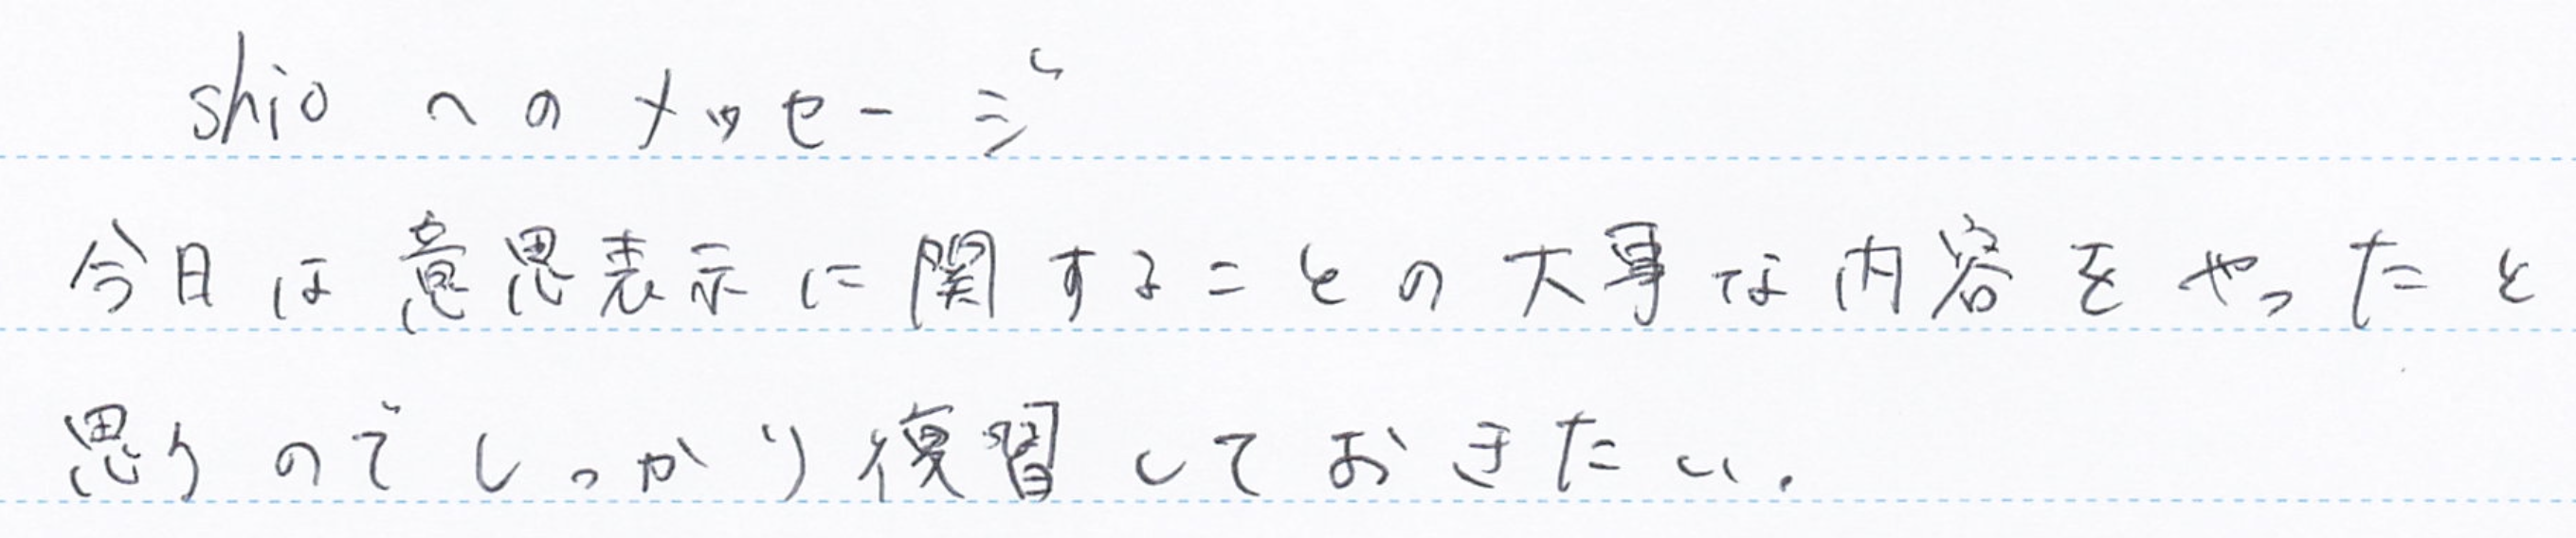 shioへのメッセージ
今日は意思表示に関することの大事な内容をやったと
思うのでしっかり復習しておきたい.